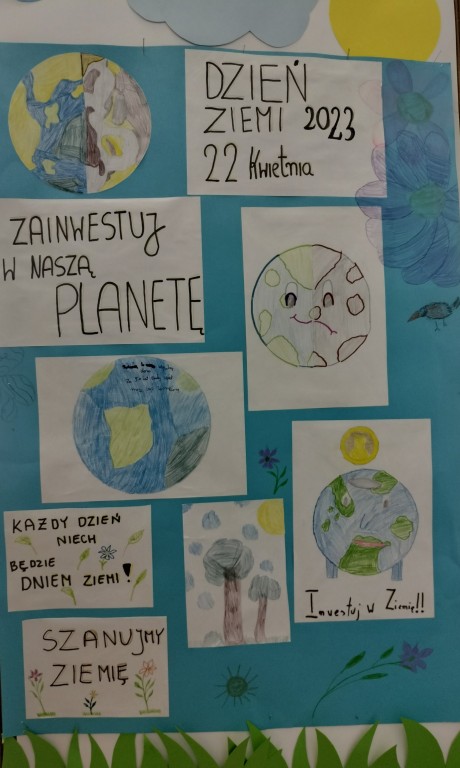 DZIEŃ
ZIEMI 2023
22 Kwietnia
ZAINWESTUJ
W NASZĄ
PLANETĘ
KAŻDY DZIEŃ
NIECH
BĘDZIE
DNIEM ZIEMI!
Inwestuj w Ziemię!!
SZANUJMY
ZIEMIĘ